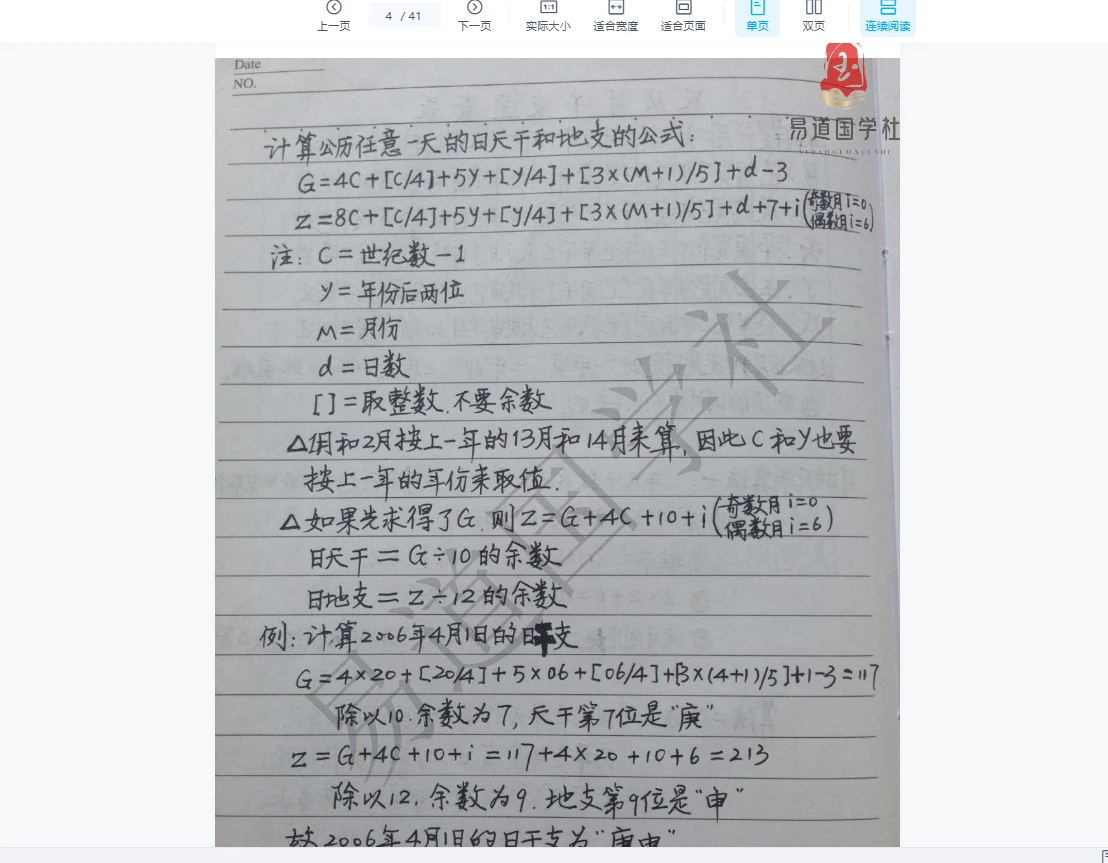 上一页
4 / 41
下一页
1:1
实际大小
适合宽度
适合页面
单页
双页
连续阅读
Date
NO.
易道国学社
计算公历任意一天的日天干和地支的公式:
G=4C+[C/4]+5y+[y/4]+[3×(M+1)/5]+d-3
Z=8C+[C/4]+5y+[y/4]+[3×(M+1)/5]+d+7+i(奇数月i=0 偶数月i=6)
注: C=世纪数-1
y=年份后两位
M=月份
d=日数
[]=取整数.不要余数
△1月和2月按上一年的13月和14月来算,因此C和y也要
按上一年的年份来取值.
△如果先求得了G.则Z=G+4C+10+i(奇数月i=0 偶数月i=6)
日天干=G÷10的余数
日地支=Z÷12的余数
例:计算2006年4月1日的日干支
G=4×20+[20/4]+5×06+[06/4]+[3×(4+1)/5]+1-3=117
除以10.余数为7,天干第7位是"庚"
Z=G+4C+10+i=117+4×20+10+6=213
除以12.余数为9.地支第9位是"申"
故2006年4月1日的日干支为"庚申"
易道国学社